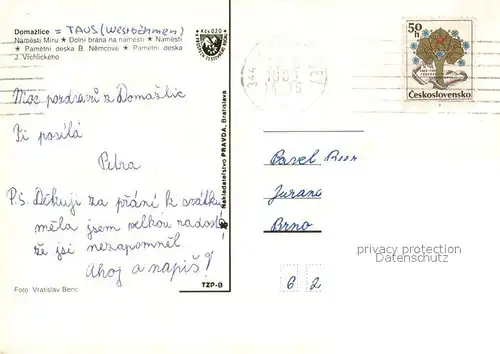 Domažlice = TAUS (Westböhmen)
Náměstí Míru ★ Dolní brána na náměstí ★ Náměstí
★ Pamětní deska B. Němcové ★ Pamětní deska
J. Vrchlického
Kčs 0,20
50
h
Československo
344
1989
14
Moc pozdravů z Domažlic
Ti posílá
Petra
P.S. Děkuji za přání k svátku
měla jsem velkou radost
že jsi nezapomněl.
Ahoj a napiš!
Nakladatelství PRAVDA, Bratislava
Pavel
Jurana
Brno
62
privacy protection
Datenschutz
Foto Vratislav Benc
TZP-B